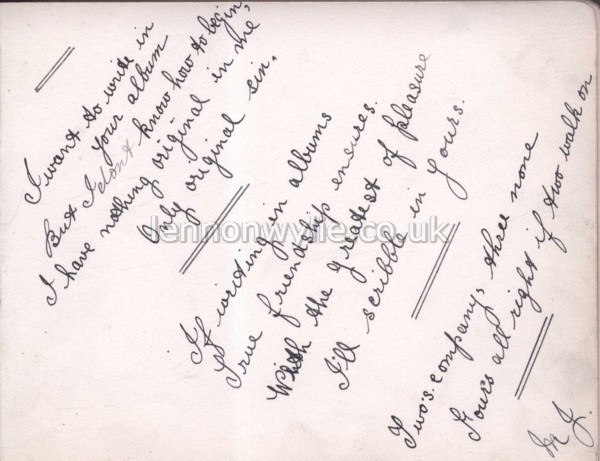 I want to write in
your album
But I don't know how to begin,
I have nothing original in me
Only original sin.
If writing in albums
True friendship ensures.
With the greatest of pleasure
I'll scribble in yours.
Two's company, three none
Four's all right if two walk on
lennonwylie.co.uk